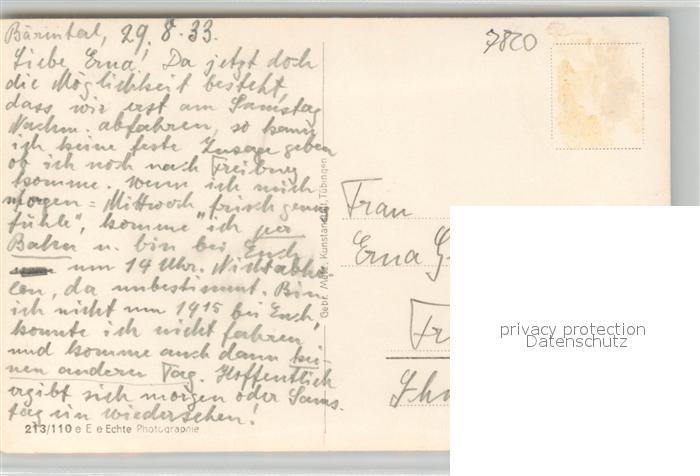 Bärental, 29. 8. 33.
Liebe Erna! Da jetzt doch
die Möglichkeit besteht,
dass wir erst am Samstag
Nachm. abfahren, so kann
ich keine feste Zusage geben
ob ich noch nach Freiburg
komme. Wenn ich mich
morgen = Mittwoch frisch genug
fühle", komme "ich per
Bahn u. bin bei Euch
um 14 Uhr. Nichtabho-
len, da unbestimmt. Bin
ich nicht um 1415 bei Euch,
konnte ich nicht fahren
und komme auch dann kei-
nen anderen Tag. Hoffentlich
ergibt sich morgen oder Sams-
tag ein wiedersehen!
213/110 e E e Echte Photographie
Gebr. Metz, Kunstanstalt, Tübingen
7820
Frau
Erna
privacy protection
Datenschutz